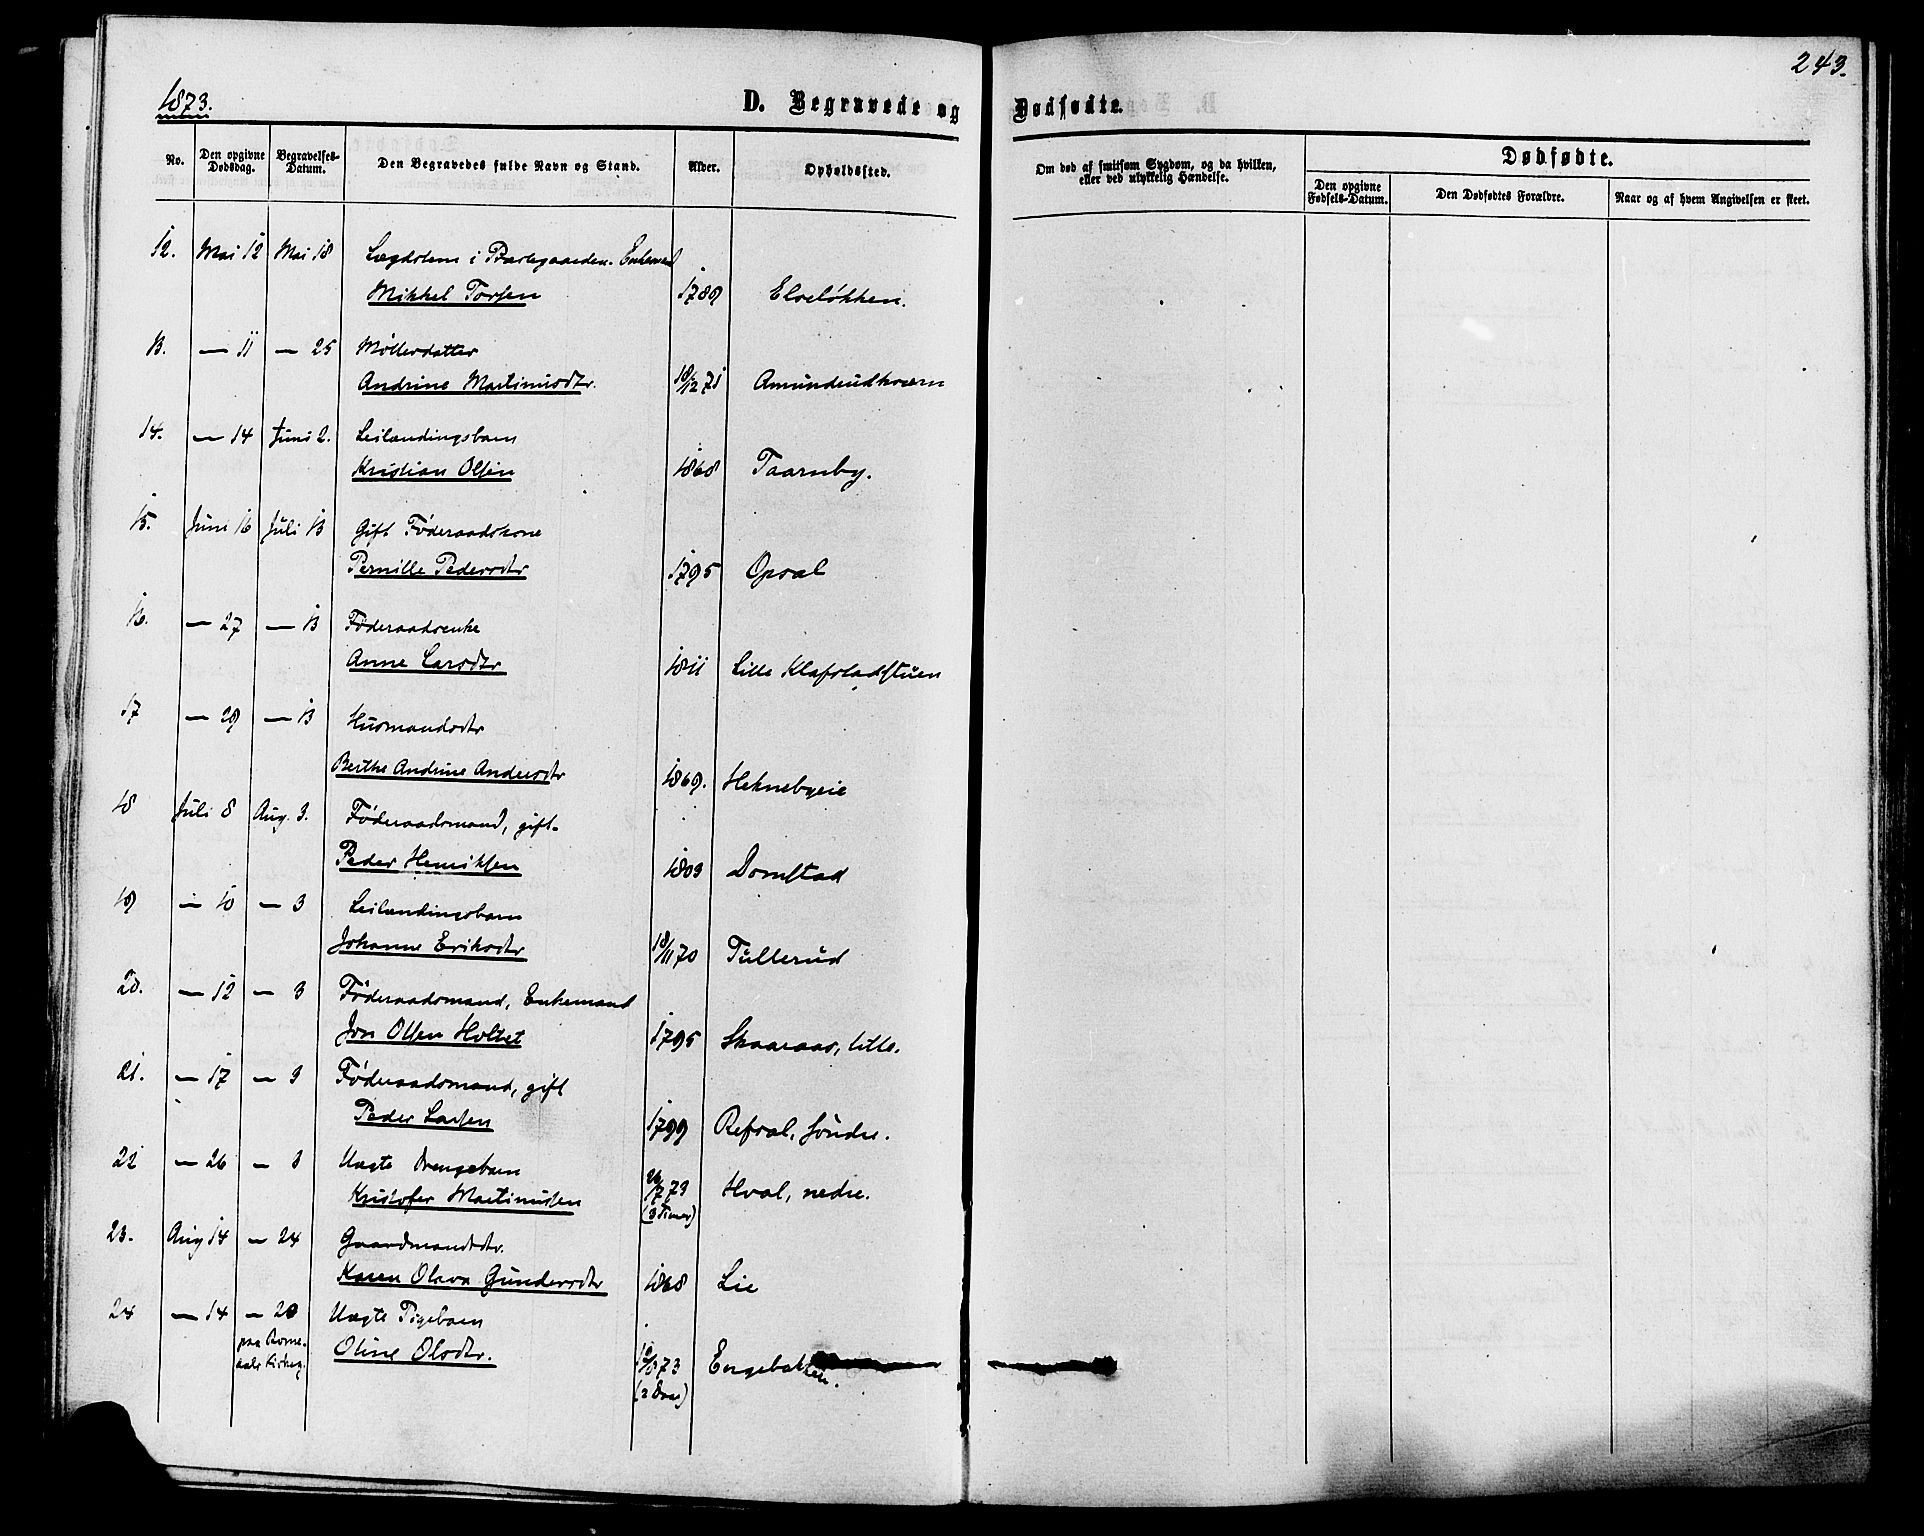 243.
1873.
D. Begravede og Dødfødte.
No. Den opgivne Dødsdag. Begravelses-Datum. Den Begravedes fulde Navn og Stand. Alder. Opholdssted. Om død af smitsom Sygdom, og da hvilken, eller ved ulykkelig Hændelse. Dødfødte.
Den opgivne Fødsels-Datum. Den Dødfødtes Forældre. Naar og af hvem Angivelsen er skeet.
12. Mai 12 Mai 18 Lægdslem i Præstegaarden. Enkemand
Mikkel Torsen 1789 Elveløkken.
13. — 11 — 25 Møllerdatter
Andrine Martinusdtr. 18/12 71 Amundrudkværn
14. — 14 Juni 2. Leilændingsbarn
Kristian Olsen 1868 Taarnby.
15. Juni 16 Juli 13 Gift Føderaadskone
Pernille Pedersdtr 1795 Opsal
16. — 27 — 13 Føderaadsenke
Anne Larsdtr 1811 Lille Klafstadstuen
17 — 29 — 13 Husmandsdtr
Berthe Andrine Andersdtr 1869. Heknebyeie
18 Juli 8 Aug. 3. Føderaadsmand, gift.
Peder Henriksen 1803 Domstad
19 — 10 — 3 Leilændingsbarn
Johanne Eriksdtr 18/11 70 Tullerud
20. — 12 — 3 Føderaadsmand, Enkemand
Jon Olsen Holtet 1795 Skaaraas, lille.
21. — 17 — 3 Føderaadsmand, gift
Peder Larsen 1799 Refsal, søndre.
22 — 26 — 3 Uægte Drengebarn
Kristofer Martinussen 26/7 73 Hval, nedre.
(3 Timer)
23. Aug 14 — 24 Gaardmandsdtr.
Karen Olava Gundersdtr 1868 Lie
24 — 14 — 20 Uægte Pigebarn
paa Rome-
dals Kirkeg.
Oline Olsdtr. 12/8 73 Engebakken.
(2 Dage)